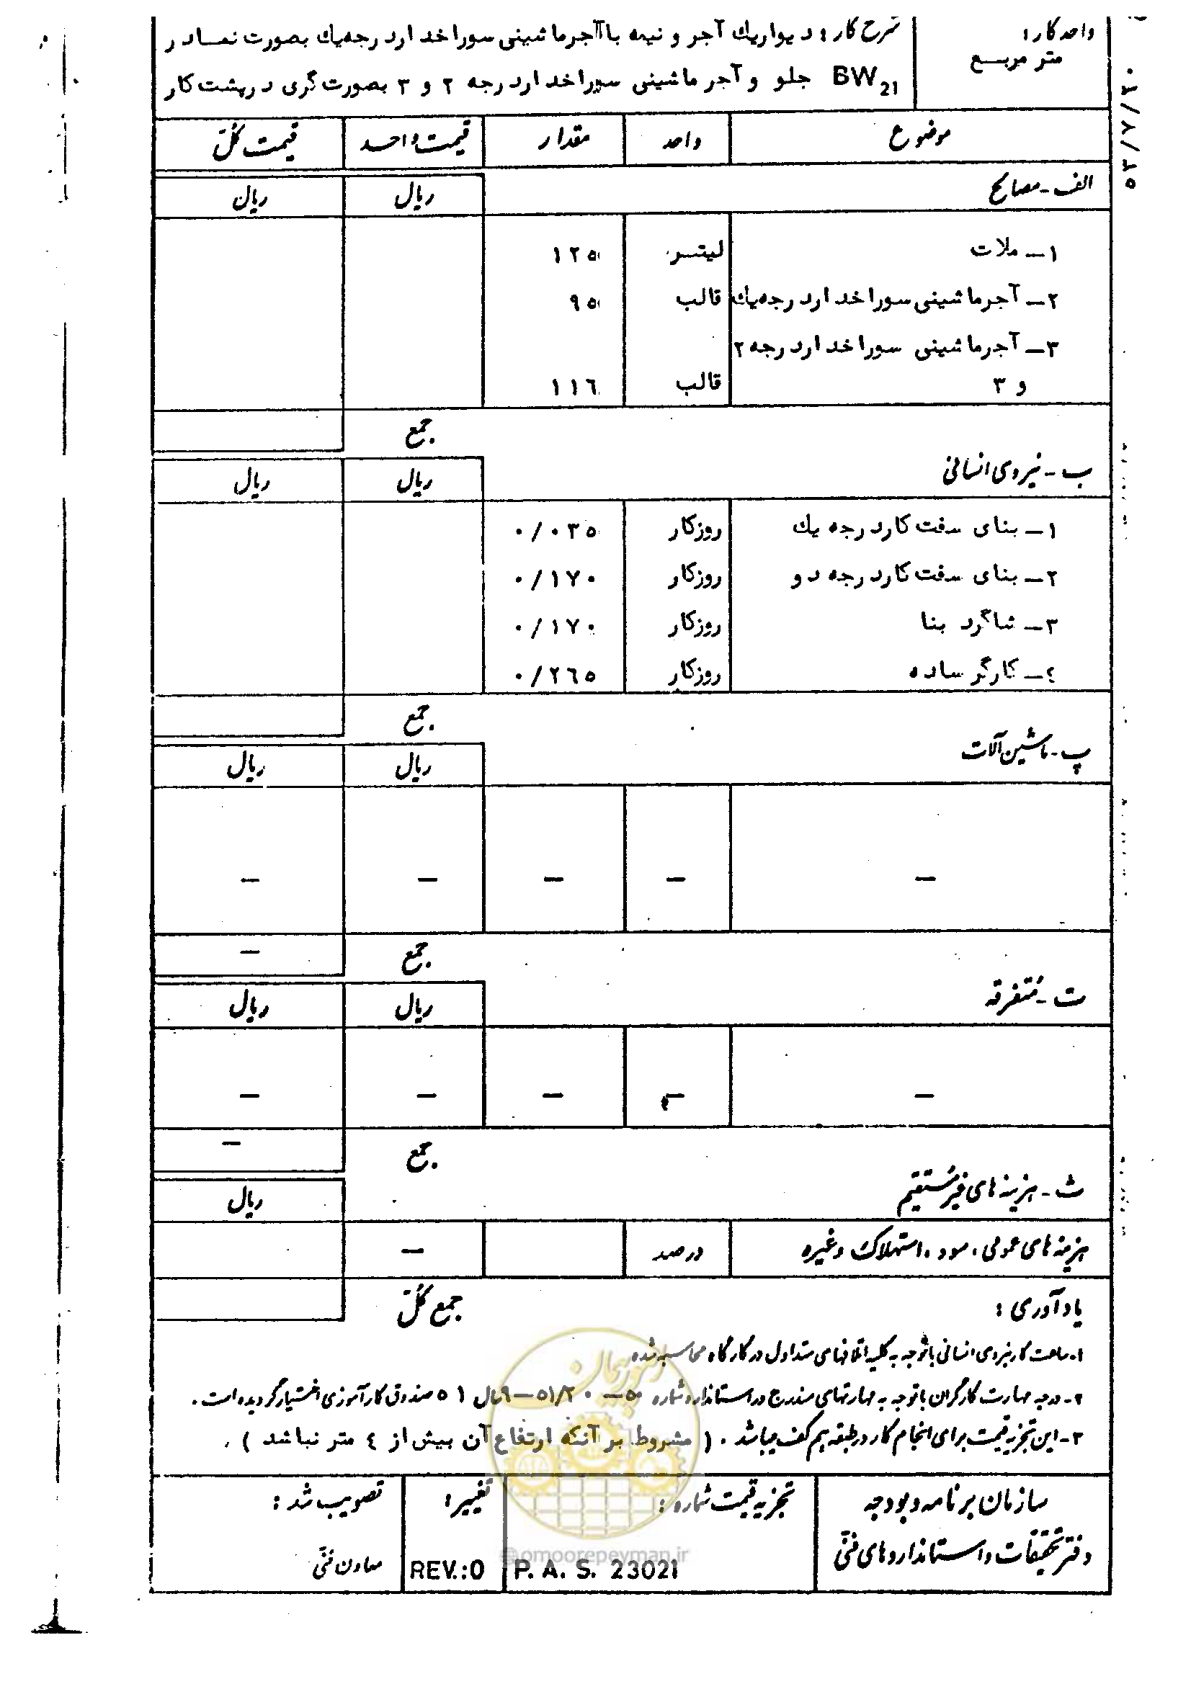 واحد کار :
متر مربع
شرح کار : دیوار یک آجر و نیمه با آجر ماشینی سوراخدار درجه یک بصورت نما در
جلو و آجر ماشینی سوراخدار درجه ۲ و ۳ بصورت گری در پشت کار BW21
موضوع واحد مقدار قیمت واحد قیمت کل
الف - مصالح ریال ریال
۱ــ ملات لیتر ۱۲۵
۲ــ آجر ماشینی سوراخدار درجه یک قالب ۹۵
۳ــ آجر ماشینی سوراخدار درجه ۲
و ۳ قالب ۱۱۶
جمع
ب - نیروی انسانی ریال ریال
۱ــ بنای سفت کار درجه یک روزکار ۰/۰۳۵
۲ــ بنای سفت کار درجه دو روزکار ۰/۱۷۰
۳ــ شاگرد بنا روزکار ۰/۱۷۰
۴ــ کارگر ساده روزکار ۰/۲۶۵
جمع
پ - ماشین آلات ریال ریال
— — — — —
جمع —
ت - متفرقه ریال ریال
— — — — —
جمع —
ث - هزینه های غیر مستقیم ریال
هزینه های عمومی ، سود ، استهلاک وغیره درصد —
جمع کل
یادآوری :
۱- ساعت کار نیروی انسانی باتوجه به کلیه اتلافهای متداول در کارگاه محاسبه شده
۲- درجه مهارت کارگران باتوجه به مهارتهای مندرج در استاندارد شماره صندوق کارآموزی اختیار گردیده است .
۳- این تجزیه قیمت برای انجام کار در طبقه هم کف میباشد . ( مشروط بر آنکه ارتفاع آن بیش از ٤ متر نباشد ) .
سازمان برنامه و بودجه
دفتر تحقیقات و استانداردهای فنی
تجزیه قیمت شماره :
P. A. S. 23021
تغییر :
REV.:0
تصویب شد :
معاون فنی
امور پیمان
@omoorepeyman.ir